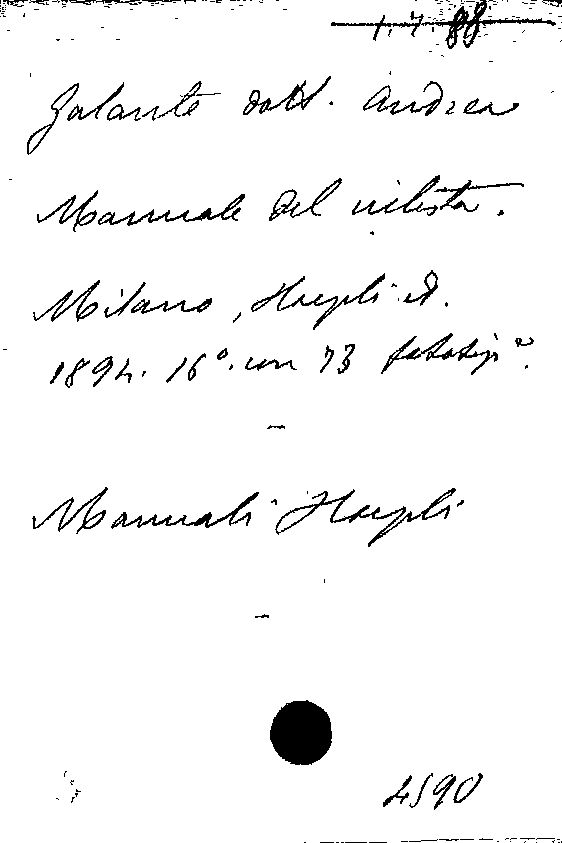 1.7.88
Galante dott. Andrea
Manuale del ciclista.
Milano, Hoepli ed.
1894. 16°. con 73 fototip e.
–
Manuali Hoepli
–
4590